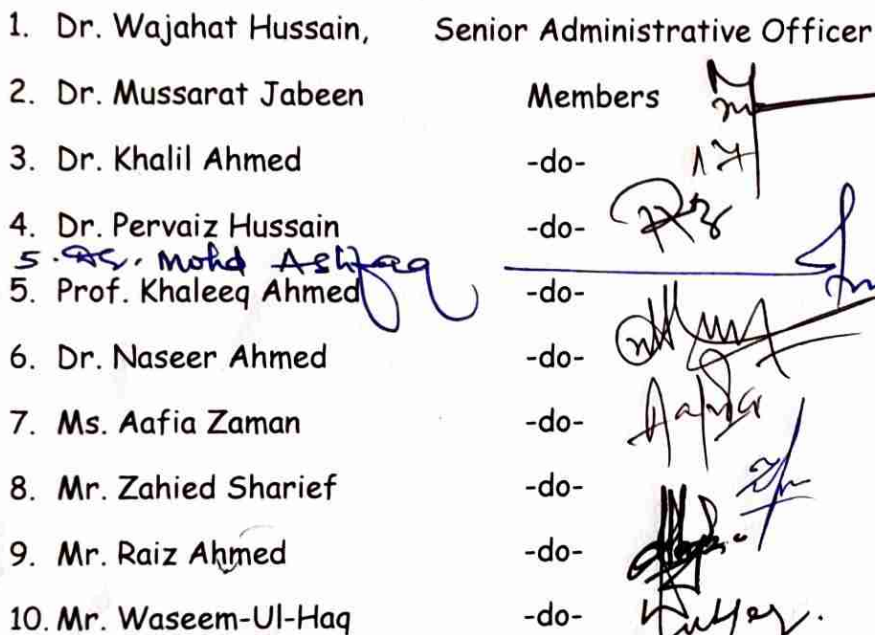 1. Dr. Wajahat Hussain, Senior Administrative Officer
2. Dr. Mussarat Jabeen Members
3. Dr. Khalil Ahmed -do-
4. Dr. Pervaiz Hussain -do-
5. Dr. Mohd Ashfaq
5. Prof. Khaleeq Ahmed -do-
6. Dr. Naseer Ahmed -do-
7. Ms. Aafia Zaman -do-
8. Mr. Zahied Sharief -do-
9. Mr. Raiz Ahmed -do-
10. Mr. Waseem-Ul-Haq -do-